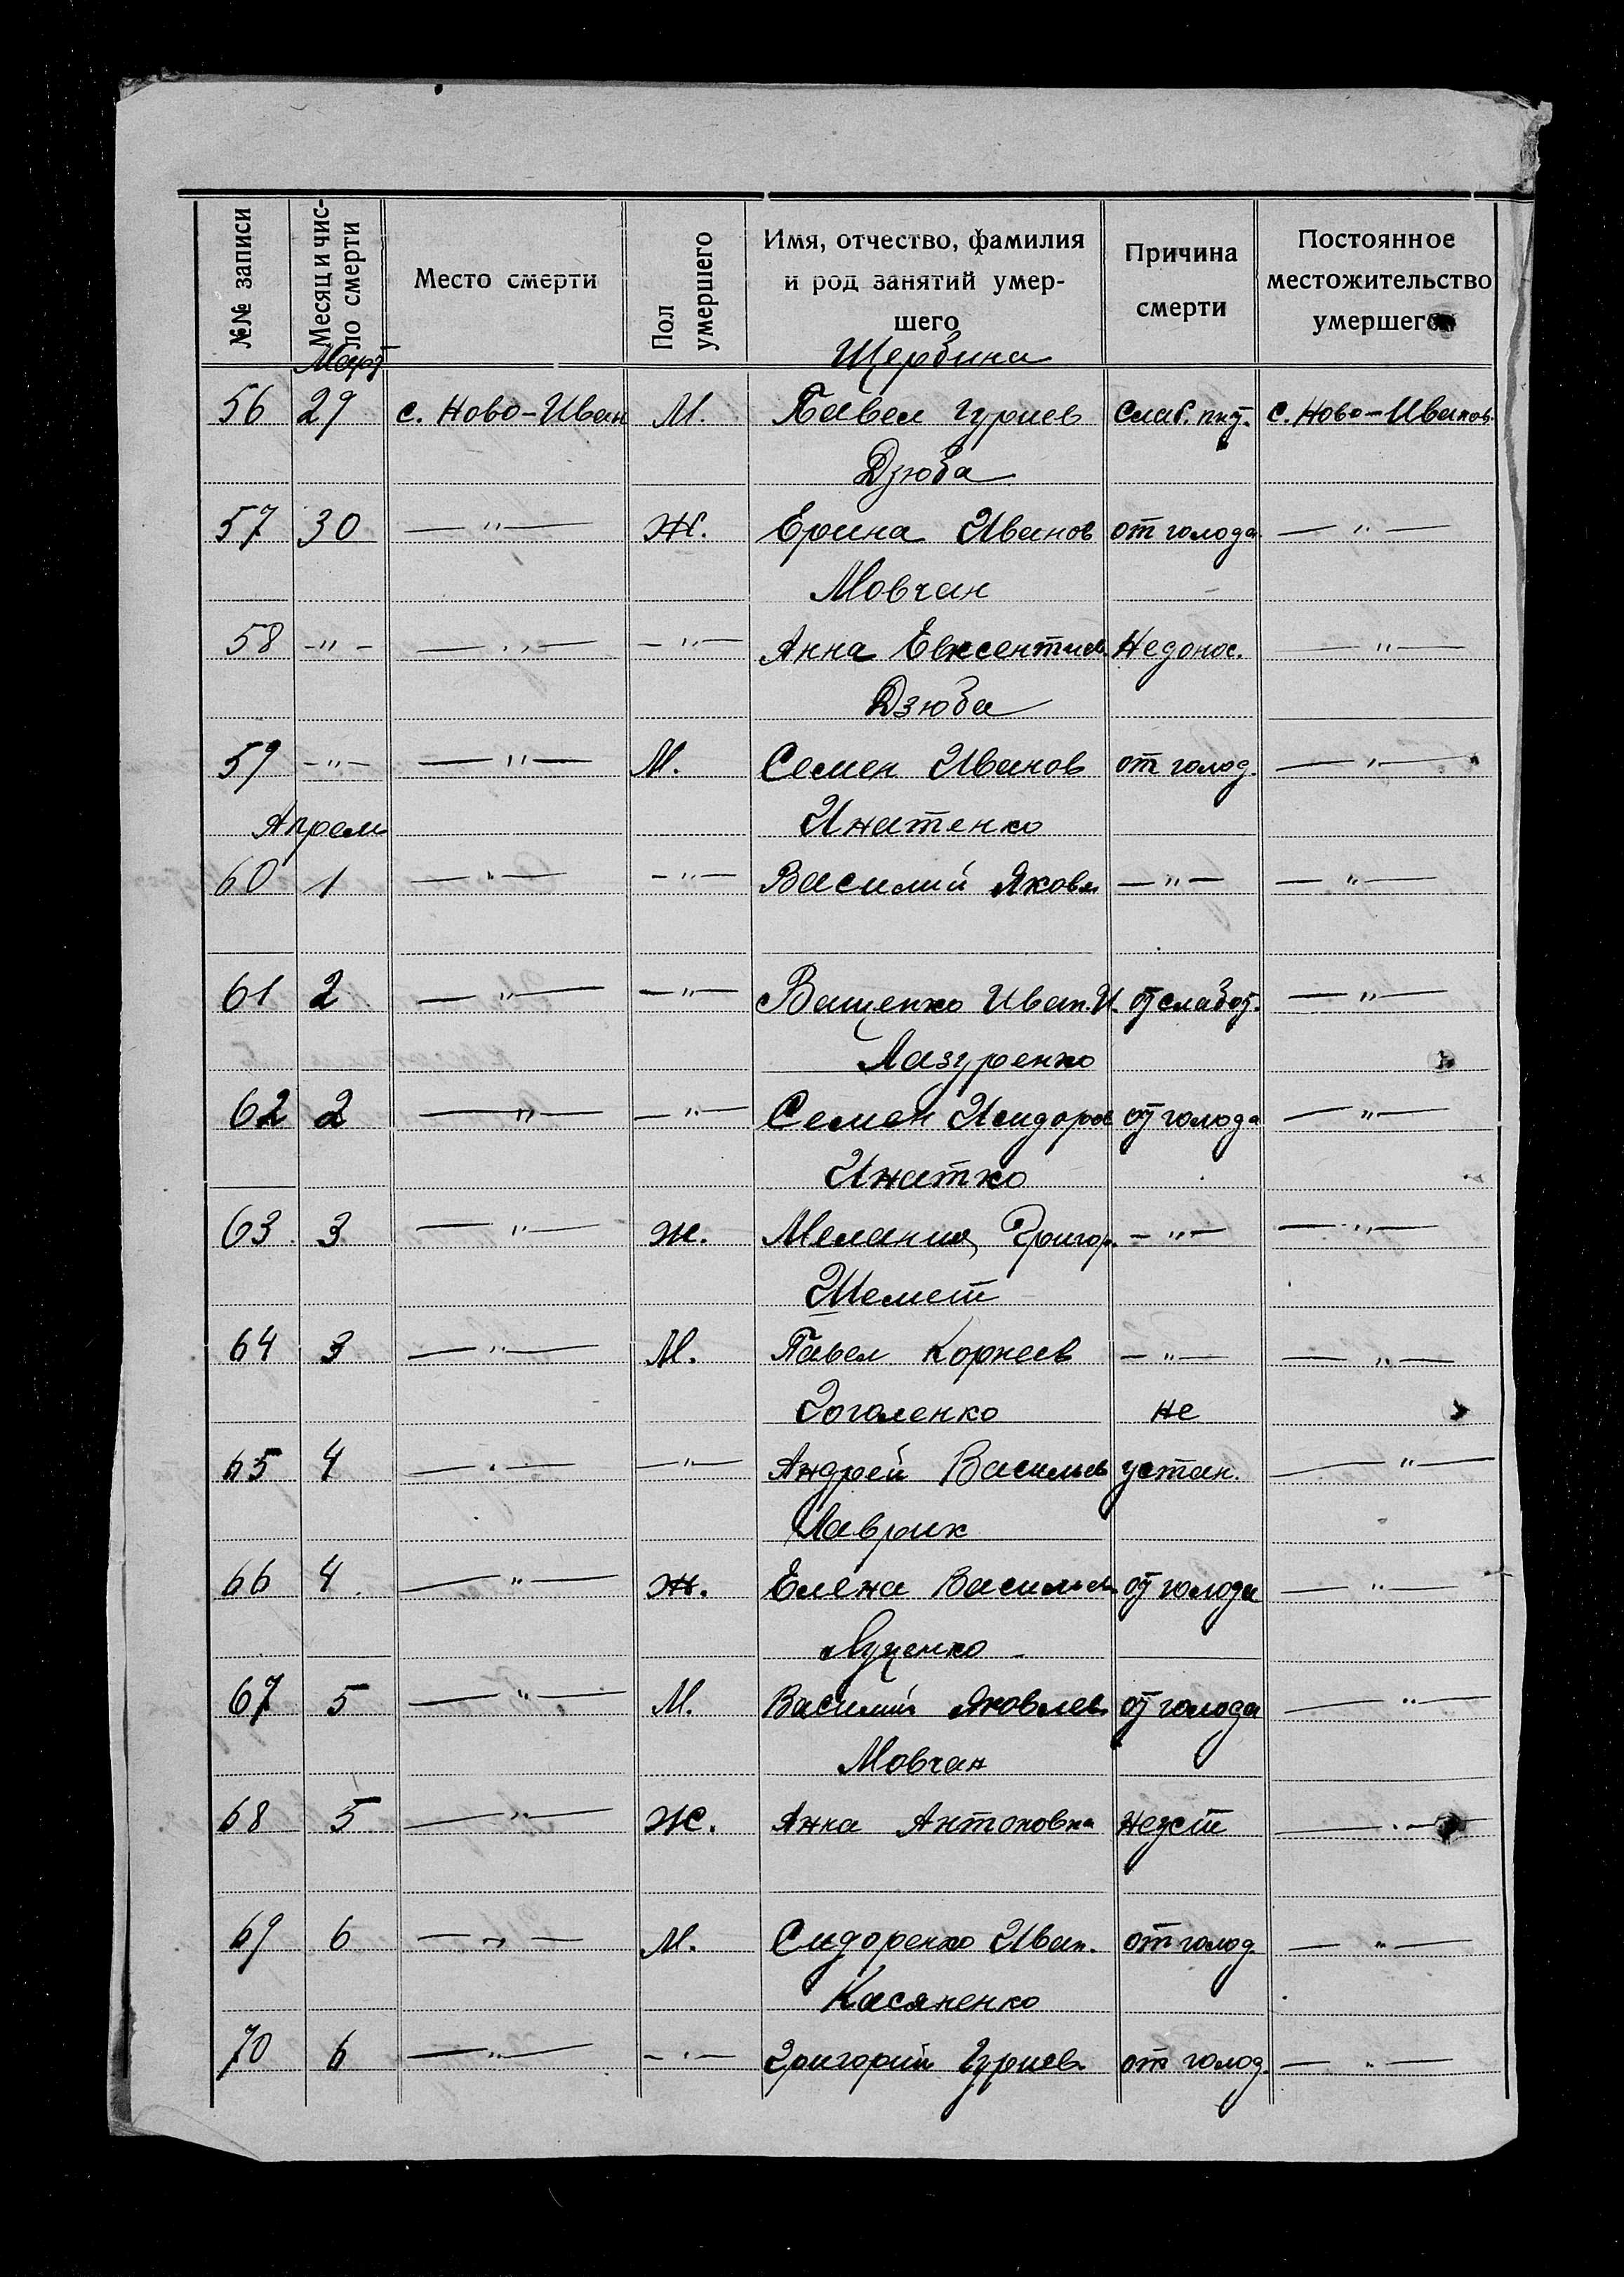 №№ записи Месяц и чис- ло смерти Место смерти Пол умершего Имя, отчество, фамилия и род занятий умер- шего Причина смерти Постоянное местожительство умершего
Март Щербина
56 29 с. Ново-Иван М. Павел Гуриев Слаб. с. Ново-Иванов.
Дзюба
57 30 —"— Ж. Ерина Иванов от голода —"—
Мовчан
58 -"- —"— —"— Анна Евксентиев Недонос. —"—
Дзюба
59 -"- —"— М. Семен Иванов от голод. —"—
Апрель Ихатенко
60 1 —"— -"- Василий Яковл —"— —"—
61 2 —"— —"— Ващенко Иван. И. от слабот. —"—
Лазуренко
62 2 —"— —"— Семен Исидоров от голода —"—
Ихатко
63 3 —"— ж. Мелания Григор. -"- —"—
Шемет
64 3 —"— М. Павел Корнеев —"— —"—
Гоголенко не
65 4 —"— —"— Андрей Васильев устан. —"—
Лаврик
66 4 —"— ж. Елена Васильев от голода —"—
Луценко
67 5 —"— М. Василий Яковлев от голода —"—
Мовчан
68 5 —"— Ж. Анна Антоновна Неуст —"—
69 6 —"— М. Сидоренко Иван. от голод —"—
Касяненко
70 6 —"— -"- Григорий Гуриев от голод. —"—